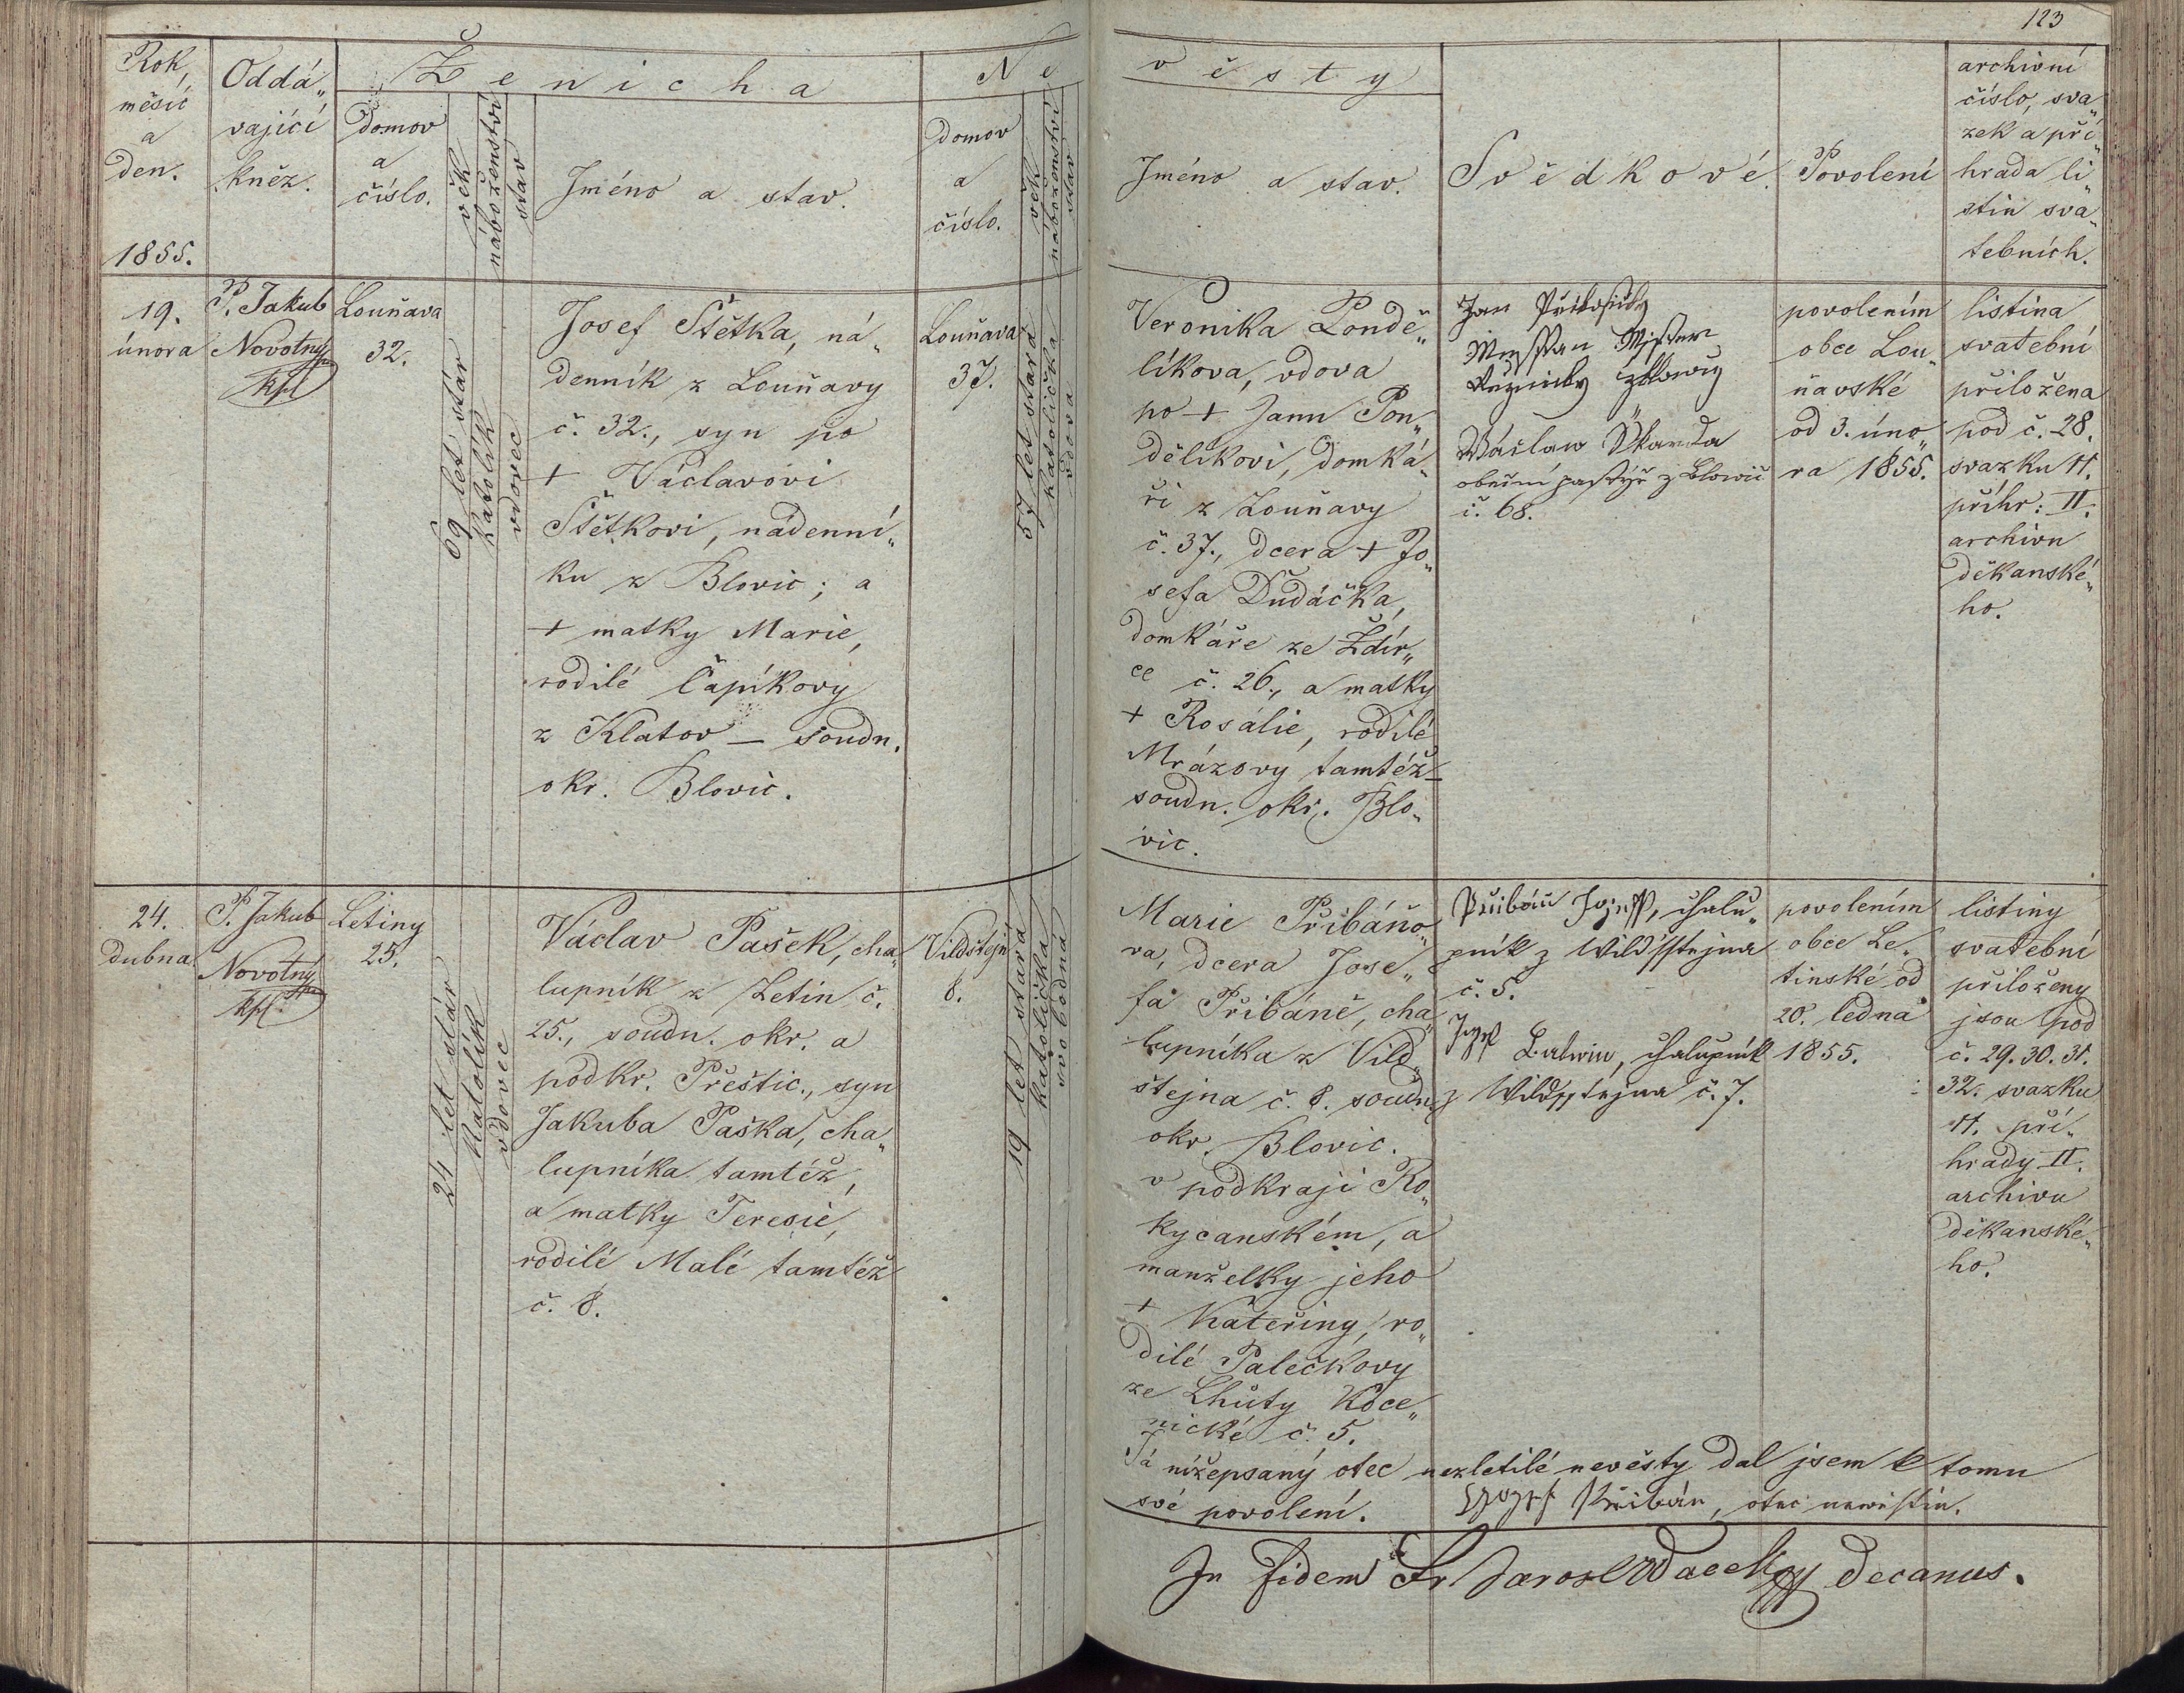 123
Rok,
měsíc
a
den.
1855.
Oddá„
vající
kněz.
Ženicha
domov
a
číslo.
věk
náboženství
stav
Jméno a stav.
Ne
domov
a
číslo.
věk
náboženství
stav
věsty
Jméno a stav.
Svědkové.
Povolení
archivní
číslo, sva„
zek a při„
hrada li„
stin sva„
tebních.
19.
února
P. Jakub
Novotný
kpl
Louňava
32.
69 let stár
katolík
vdovec
Josef Štětka, ná„
denník z Louňavy
č. 32., syn po
+ Václavovi
Štětkovi, nádenní„
ku z Blovic; a
+ matky Marie,
rodilé Čapíkovy
z Klatov – soudn.
okr. Blovic.
Louňava
37.
57 let stará
katolička
vdova
Veronika Pondě„
líkova, vdova
po + Janu Pon„
dělíkovi, domká„
ři z Louňavy
č. 37., dcera + Jo„
sefa Dudáčka,
domkáře ze Ždír„
ce č. 26., a matky
+ Rosalie, rodilé
Mrázovy tamtéž –
soudn. okr. Blo„
vic.
Jan
Václaw Škarda
obecní pastýř z Blowic
č. 68.
povolením
obce Lou„
ňavské
od 3. úno„
ra 1855.
listina
svatební
přiložena
pod č. 28.
svazku 11.
příhr: II.
archivu
děkanské„
ho.
24.
dubna
P. Jakub
Novotný
kpl.
Letiny
25.
24 let stár
katolík
vdovec
Václav Pašek, cha„
lupník z Letin č.
25., soudn. okr. a
podkr. Přeštic., syn
Jakuba Paška, cha„
lupníka tamtéž,
a matky Teresie,
rodilé Malé tamtéž
č. 8.
Vildštejn
8.
19 let stará
katolička
svobodná
Marie Přibáňo„
va, dcera Jose„
fa Přibáně, cha„
lupníka z Vild„
štejna č. 8. soudn.
okr. Blovic.
v podkraji Ro„
kycanském, a
manželky jeho
+ Kateřiny, ro„
dilé Palečkovy
ze Lhůty Koce„
nické č. 5.
Přibáň Jozeff, chalu„
pník z Wildsstejna
č. 5.
Jozef chalupník
z Wildsstejna č. 7.
povolením
obce Le„
tinské od
20. ledna
1855.
listiny
svatební
přiloženy
jsou pod
č. 29. 30. 31.
32. svazku
11. pří„
hrady II.
archivu
děkanské„
ho.
Já nížepsaný otec nezletilé nevěsty dal jsem k tomu
své povolení. Jozef Přibán, otec newěstin.
In fidem Fr. Jarosl decanus.